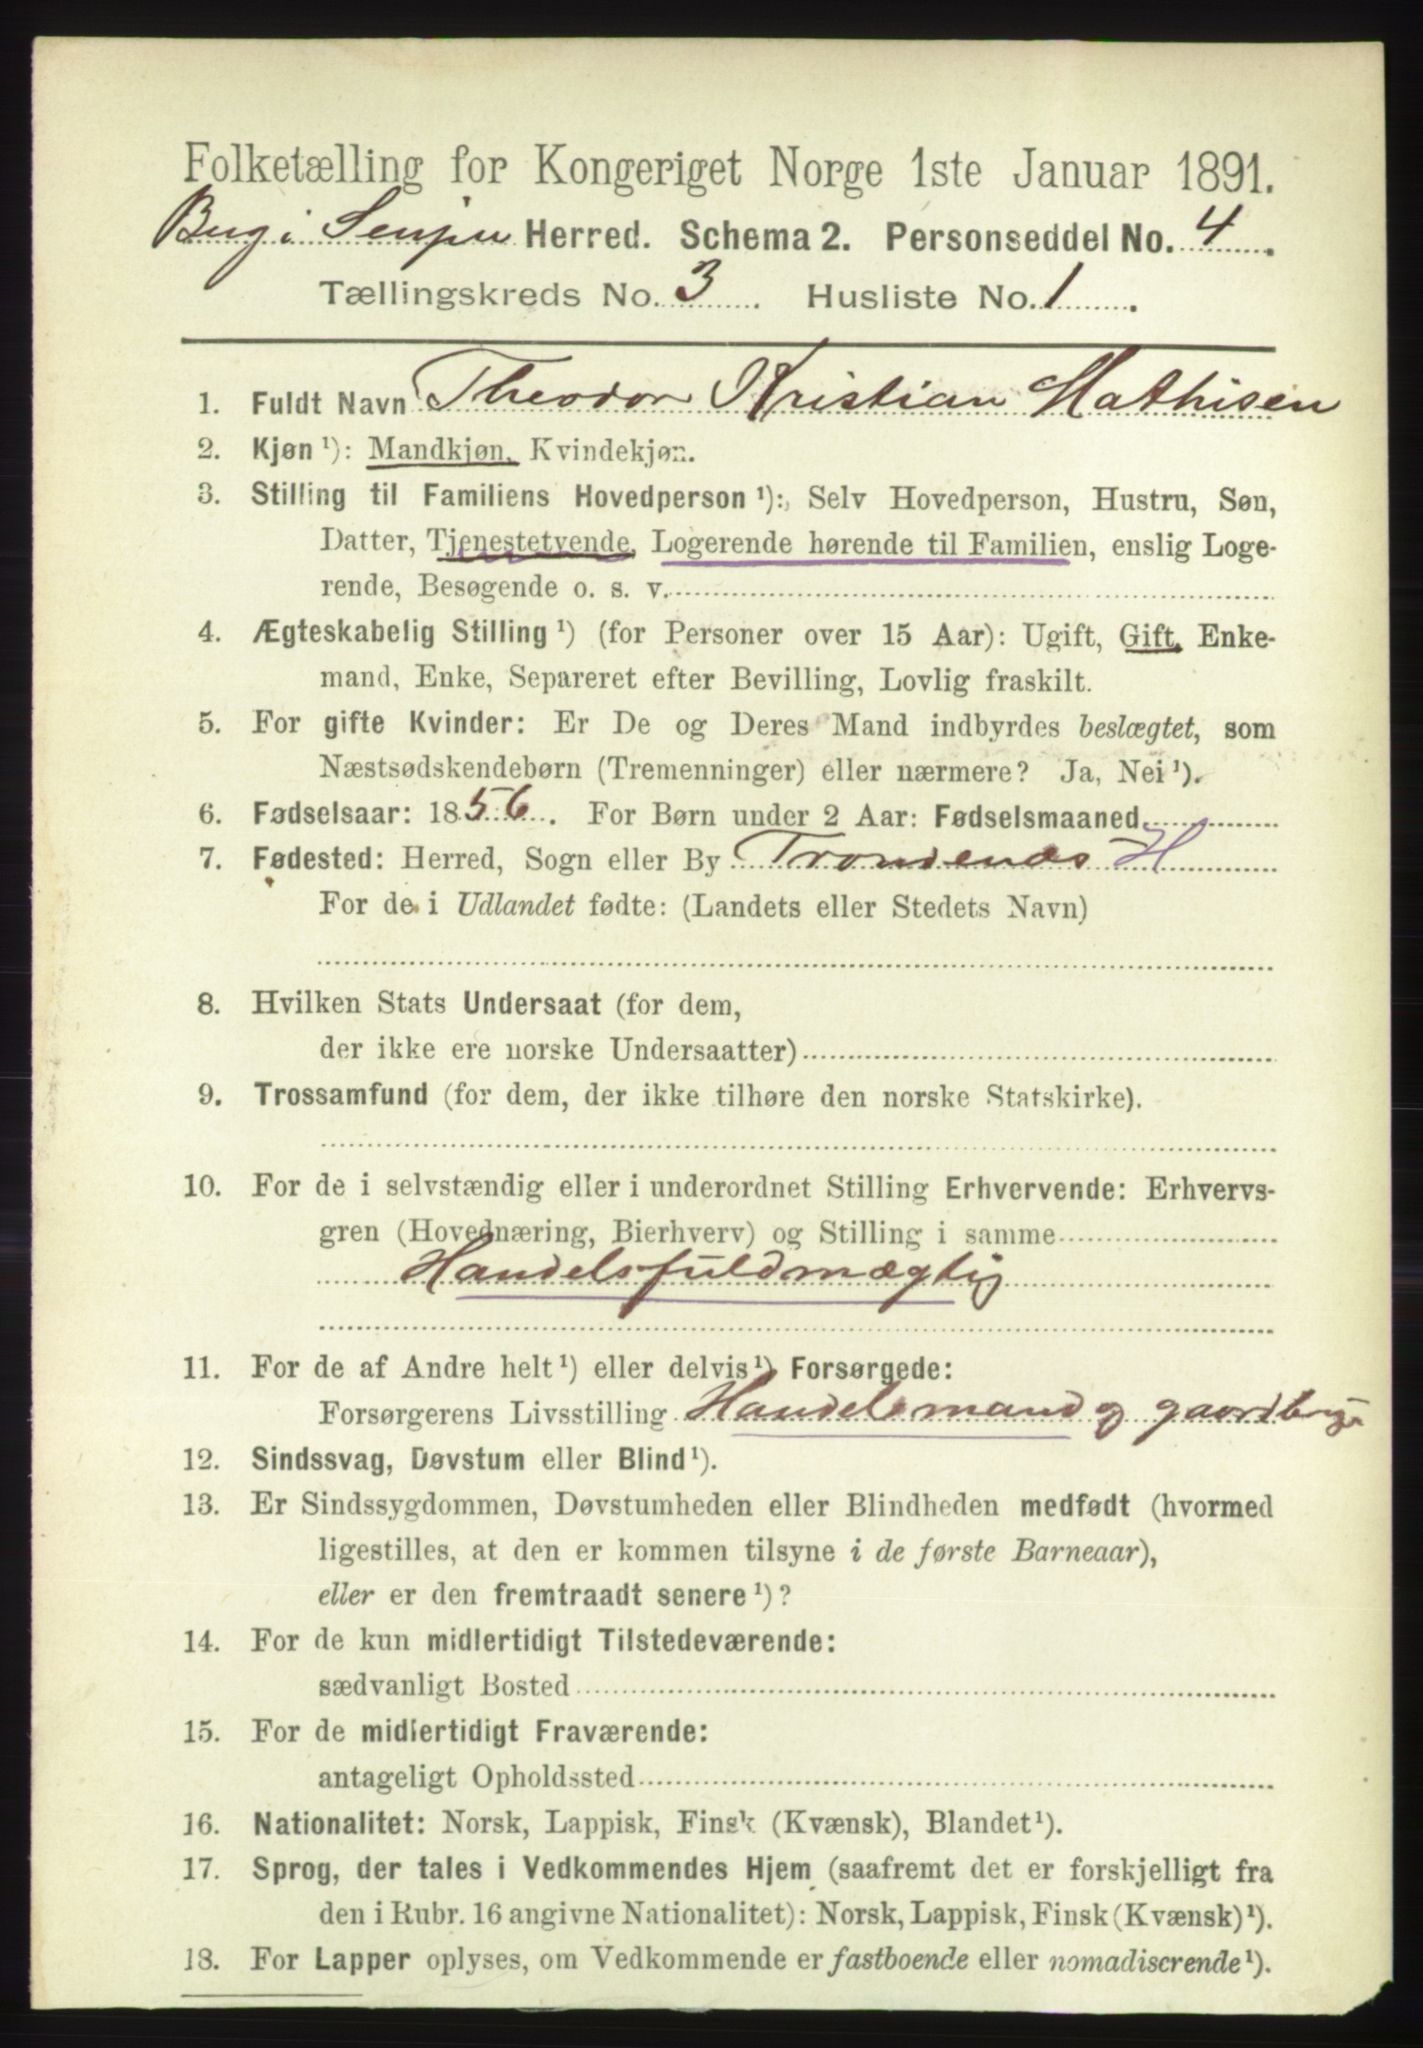 Folketælling for Kongeriget Norge 1ste Januar 1891.
Berg i Senjen Herred. Schema 2. Personseddel No. 4.
Tællingskreds No. 3. Husliste No. 1.
1. Fuldt Navn Theodor Kristian Mathisen
2. Kjøn ¹): Mandkjøn, Kvindekjøn.
3. Stilling til Familiens Hovedperson ¹): Selv Hovedperson, Hustru, Søn,
Datter, Tjenestetyende, Logerende hørende til Familien, enslig Loge-
rende, Besøgende o. s. v.
4. Ægteskabelig Stilling ¹) (for Personer over 15 Aar): Ugift, Gift, Enke-
mand, Enke, Separeret efter Bevilling, Lovlig fraskilt.
5. For gifte Kvinder: Er De og Deres Mand indbyrdes beslægtet, som
Næstsødskendebørn (Tremenninger) eller nærmere? Ja, Nei ¹).
6. Fødselsaar: 1856. For Børn under 2 Aar: Fødselsmaaned
7. Fødested: Herred, Sogn eller By Trondenæs H
For de i Udlandet fødte: (Landets eller Stedets Navn)
8. Hvilken Stats Undersaat (for dem,
der ikke ere norske Undersaatter)
9. Trossamfund (for dem, der ikke tilhøre den norske Statskirke).
10. For de i selvstændig eller i underordnet Stilling Erhvervende: Erhvervs-
gren (Hovednæring, Bierhverv) og Stilling i samme
Handelsfuldmægtig
11. For de af Andre helt ¹) eller delvis ¹) Forsørgede:
Forsørgerens Livsstilling Handelsmand og
12. Sindssvag, Døvstum eller Blind ¹).
13. Er Sindssygdommen, Døvstumheden eller Blindheden medfødt (hvormed
ligestilles, at den er kommen tilsyne i de første Barneaar),
eller er den fremtraadt senere ¹)?
14. For de kun midlertidigt Tilstedeværende:
sædvanligt Bosted
15. For de midlertidigt Fraværende:
antageligt Opholdssted
16. Nationalitet: Norsk, Lappisk, Finsk (Kvænsk), Blandet ¹).
17. Sprog, der tales i Vedkommendes Hjem (saafremt det er forskjelligt fra
den i Rubr. 16 angivne Nationalitet): Norsk, Lappisk, Finsk (Kvænsk) ¹).
18. For Lapper oplyses, om Vedkommende er fastboende eller nomadiserende ¹).